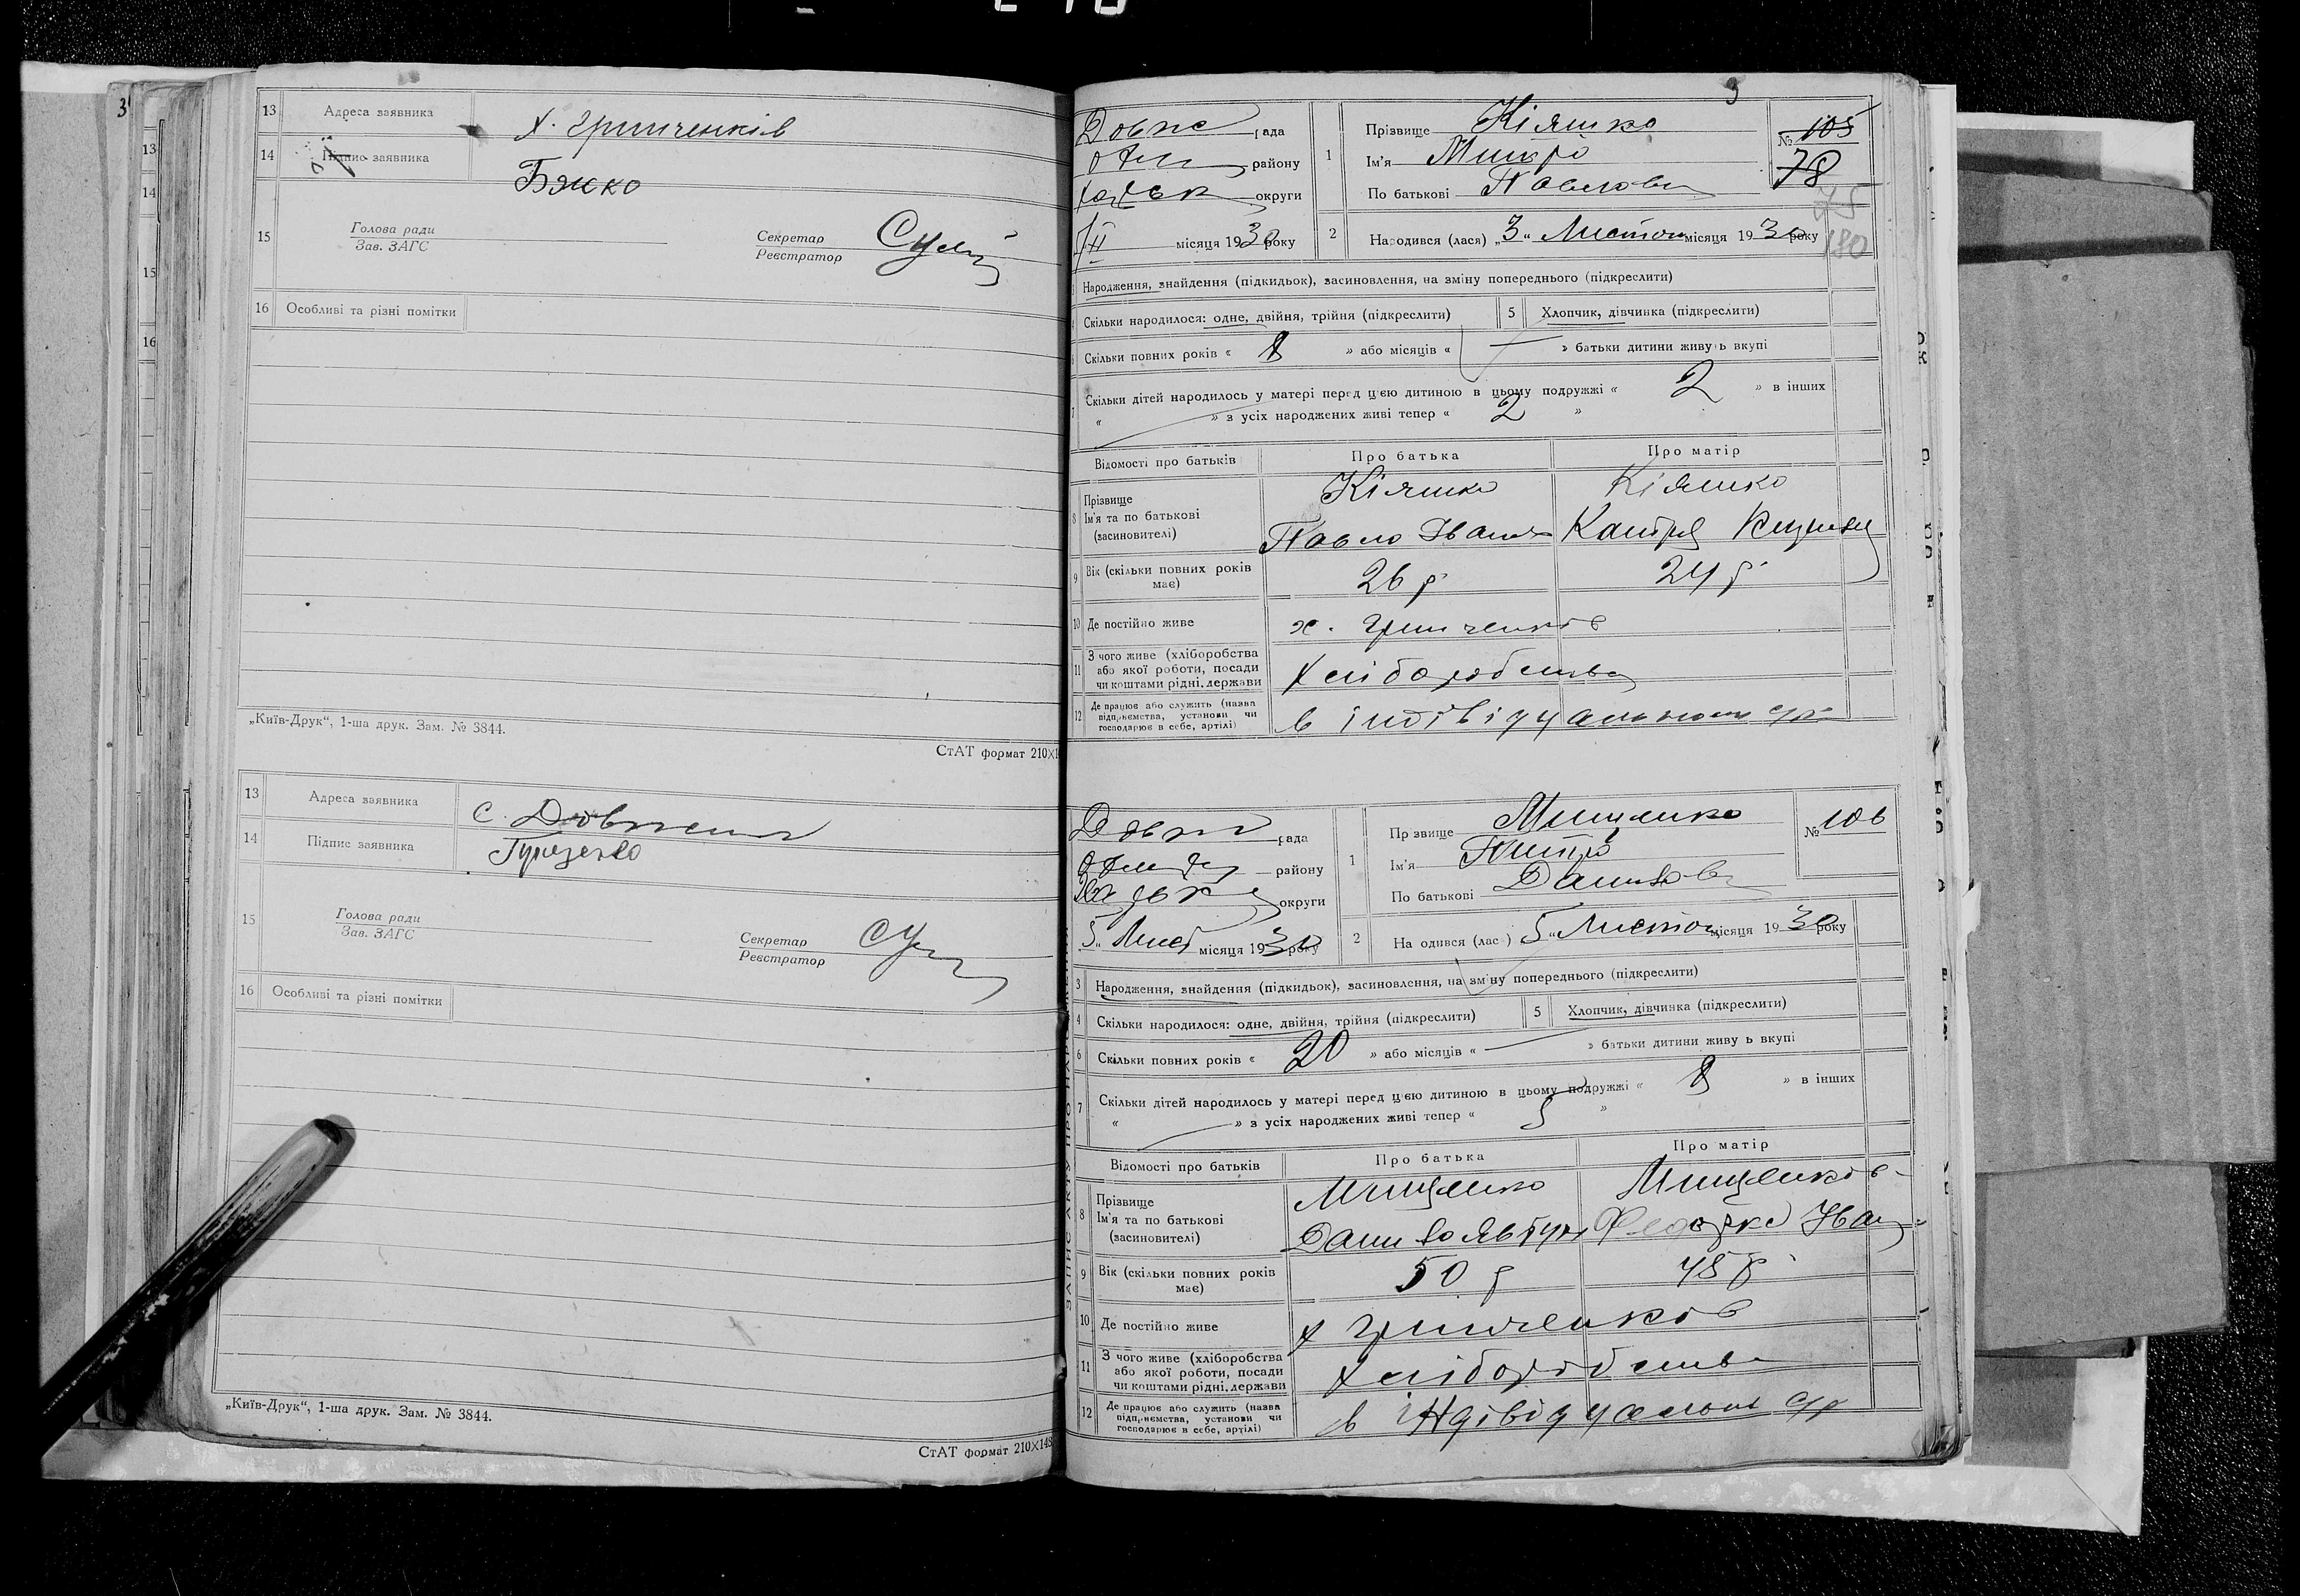 3
13 Адреса заявника х. Гринченків
14 Підпис заявника Бяжко
15 Голова ради
Зав. ЗАГС
Секретар
Реєстратор
16 Особливі та різні помітки
„Київ-Друк“, 1-ша друк. Зам. № 3844.
СтАТ формат 210×1
13 Адреса заявника с.
14 Підпис заявника
15 Голова ради
Зав. ЗАГС
Секретар
Реєстратор
16 Особливі та різні помітки
„Київ-Друк“, 1-ша друк. Зам. № 3844.
СтАТ формат 210×148
Довж рада
району
округи
місяця 1930 року
1 Прізвище Кіяшко
Ім'я
По батькові Павлов
№ 105
78
75
180
2 Народився (лася) „3“ Листоп місяця 1930 року
Народження, знайдення (підкидьок), засиновлення, на зміну попереднього (підкреслити)
Скільки народилося: одне, двійня, трійня (підкреслити) 5 Хлопчик, дівчинка (підкреслити)
Скільки повних років « 8 » або місяців « — » батьки дитини живуть вкупі
7 Скільки дітей народилось у матері перед цією дитиною в цьому подружжі « 2 » в інших
« — » з усіх народжених живі тепер « 2 »
Відомості про батьків Про батька Про матір
8 Прізвище Кіяшко Кіяшко
Ім'я та по батькові
(засиновителі) Павло Іванов
9 Вік (скільки повних років
має) 26 р 24 р
10 Де постійно живе х. Гринченків
11 З чого живе (хліборобства
або якої роботи, посади
чи коштами рідні, держави Хліборобства
12 Де працює або служить (назва
підприємства, установи чи
господарює в себе, артілі) в індівідуальном
Довж рада
району
округи
5 „ Лист місяця 1930 року
1 Прізвище Мищенко
Ім'я
По батькові Данилов
№ 106
2 Народився (лася) 5 “ Листоп місяця 1930 року
3 Народження, знайдення (підкидьок), засиновлення, на зміну попереднього (підкреслити)
4 Скільки народилося: одне, двійня, трійня (підкреслити) 5 Хлопчик, дівчинка (підкреслити)
6 Скільки повних років « 20 » або місяців « — » батьки дитини живуть вкупі
7 Скільки дітей народилось у матері перед цією дитиною в цьому подружжі « 8 » в інших
« — » з усіх народжених живі тепер « 5 »
Відомості про батьків Про батька Про матір
8 Прізвище Мищенко Мищенков
Ім'я та по батькові
(засиновителі) Данило Явтух Іван
9 Вік (скільки повних років
має) 50 р 48 р
10 Де постійно живе х Гринченков
11 З чого живе (хліборобства
або якої роботи, посади
чи коштами рідні, держави Хліборобства
12 Де працює або служить (назва
підприємства, установи чи
господарює в себе, артілі) в індівідуальн